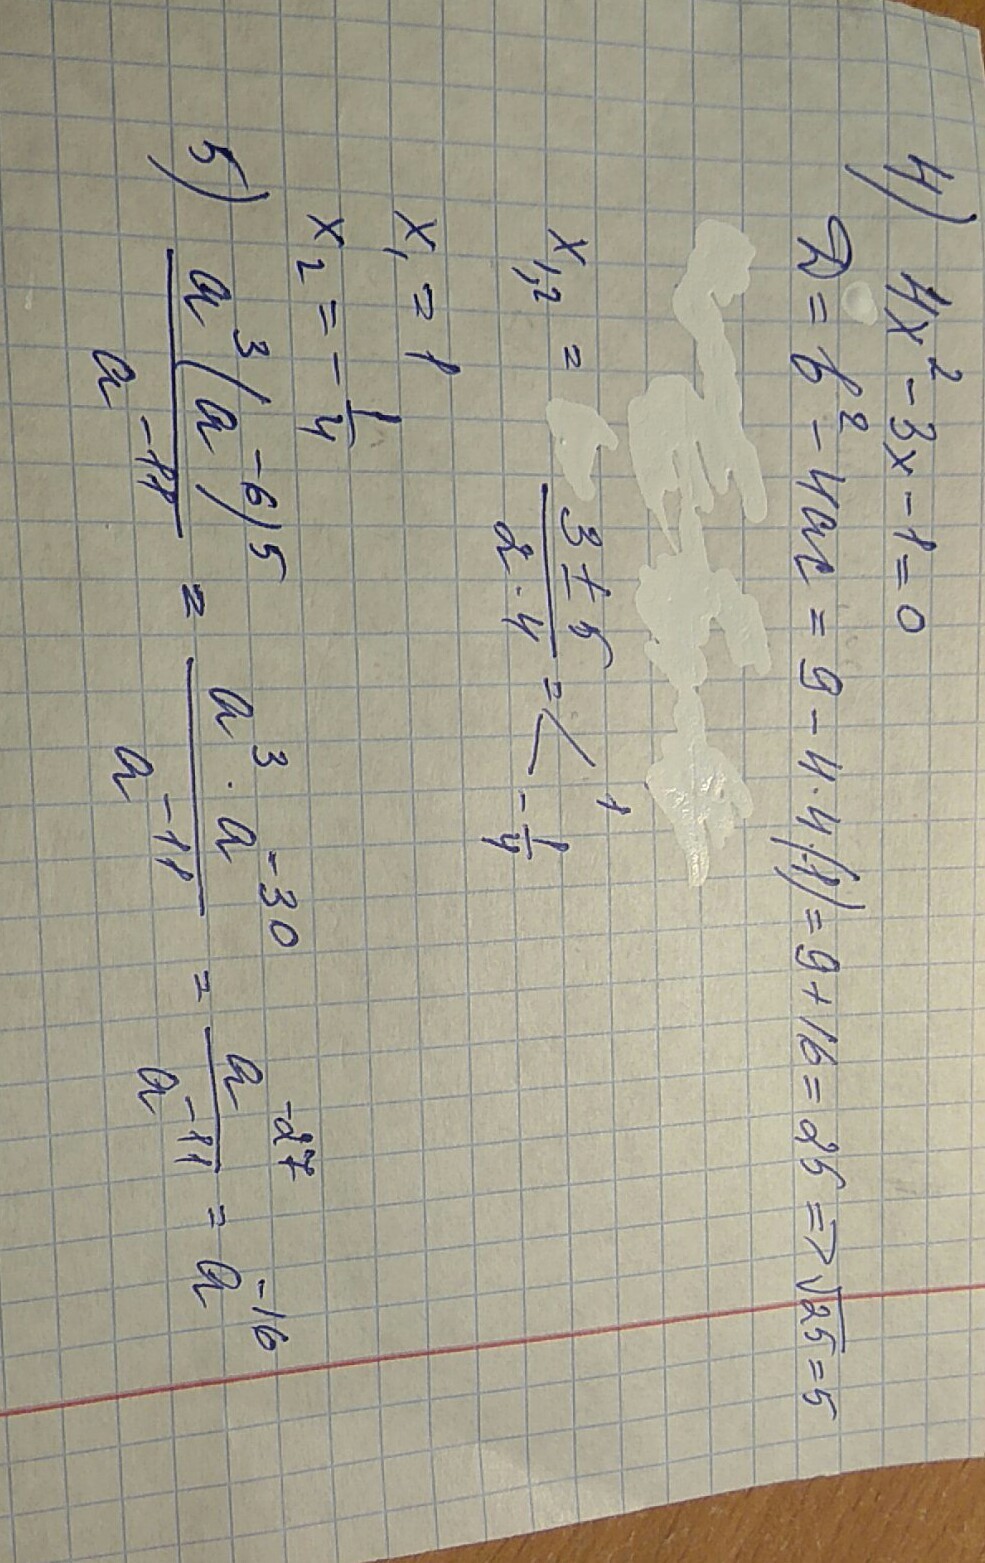 4) 4x² - 3x - 1 = 0
D = b² - 4ac = 9 - 4·4·(-1) = 9 + 16 = 25 => √25 = 5
x₁,₂ = (3 ± 5)/(2·4) = < 1
-1/4
x₁ = 1
x₂ = -1/4
5) (a³(a⁻⁶)⁵)/(a⁻¹¹) = (a³ · a⁻³⁰)/(a⁻¹¹) = (a⁻²⁷)/(a⁻¹¹) = a⁻¹⁶